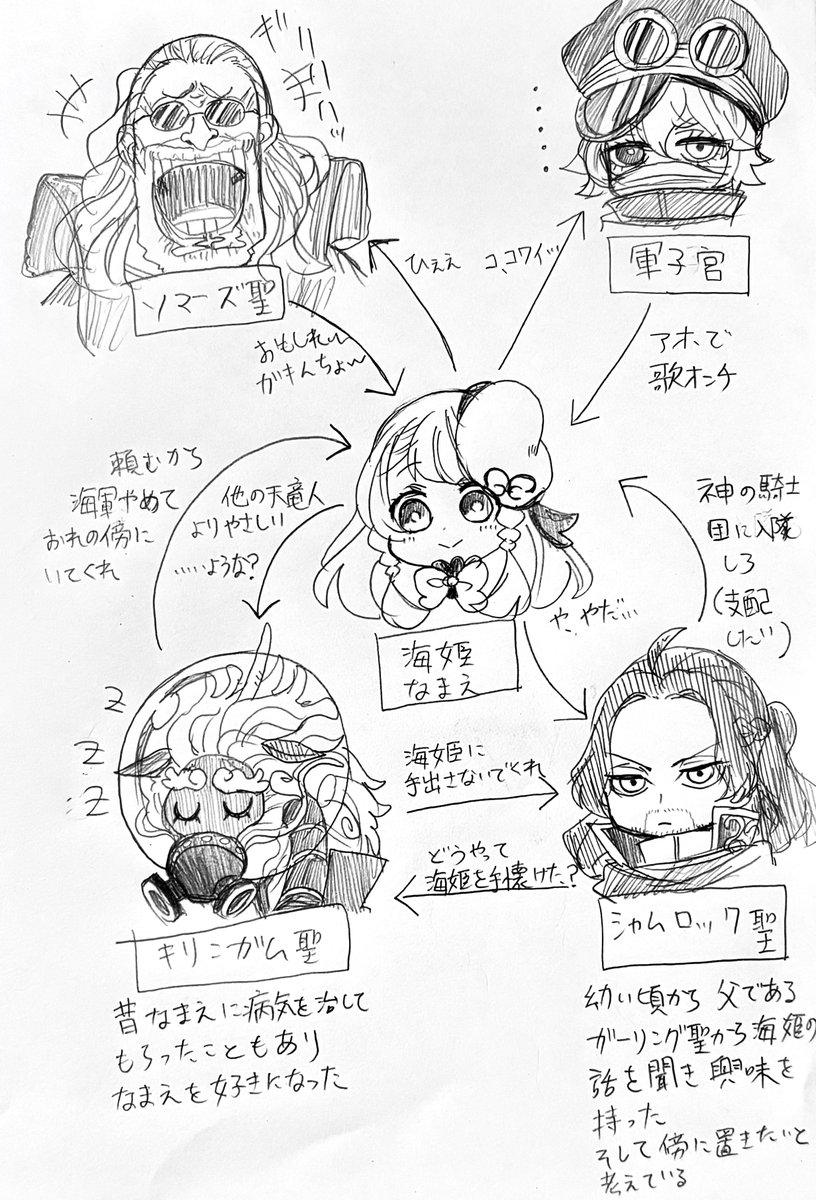 ギリ
ギリ
ハハッ
ソマーズ聖
軍子宮
ひええ
コ、コワイ…
おもしれ〜
がきんちょ〜
アホで
歌オンチ
頼むから
海軍やめて
おれの傍に
いてくれ
他の天竜人
よりやさしい
……ような?
海姫
なまえ
や、やだ…
神の騎士
団に入隊
しろ
(支配
したい)
Z
Z
Z
海姫に
手出さないでくれ
どうやって
海姫を手懐けた?
キリンガム聖
シャムロック聖
昔なまえに病気を治して
もらったこともあり
なまえを好きになった
幼い頃から父である
ガーリング聖から海姫の
話を聞き興味を
持った
そして傍に置きたいと
考えている